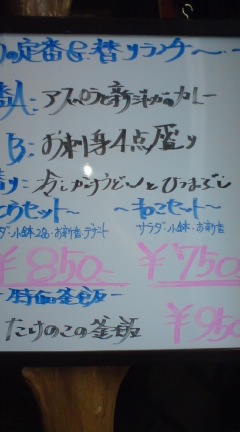 の定番&日替りランチ〜
番A:アスパラと新じゃがのカレー
B:お刺身4点盛り
替り:冷しかけうどんとひつまぶし
セット〜 〜ねこセット〜
サラダ・小鉢2品・お新香・デザート サラダ・小鉢・お新香
¥850- ¥750
-特価釜飯-
たけのこの釜飯 ¥950